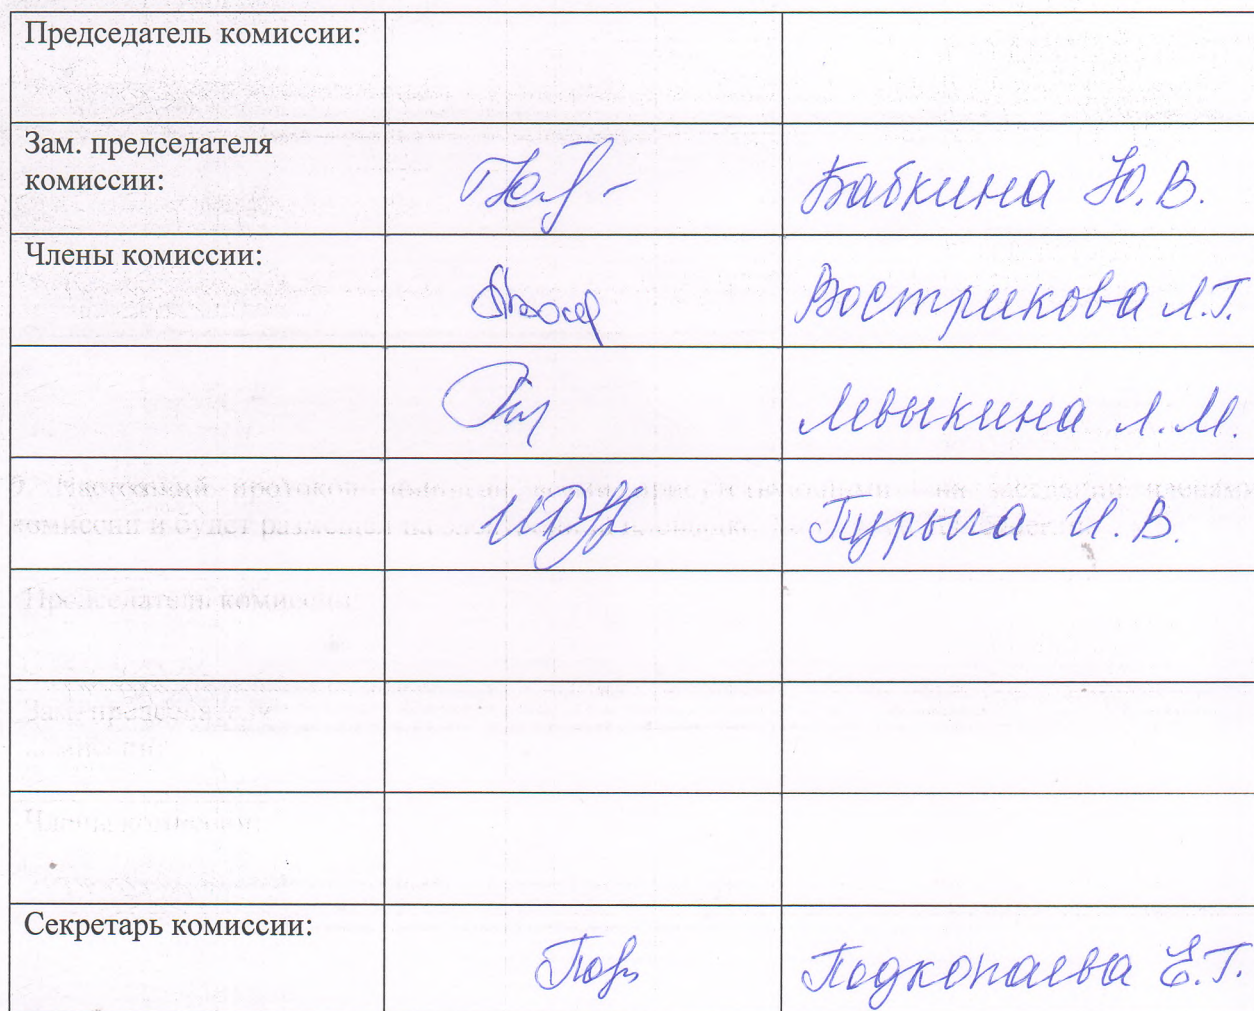 Председатель комиссии:
Зам. председателя
комиссии:
Бабкина Ю.В.
Члены комиссии:
Вострикова Л.Г.
Левыкина Л.М.
Пурыга И.В.
Секретарь комиссии:
Подкопаева Е.Г.